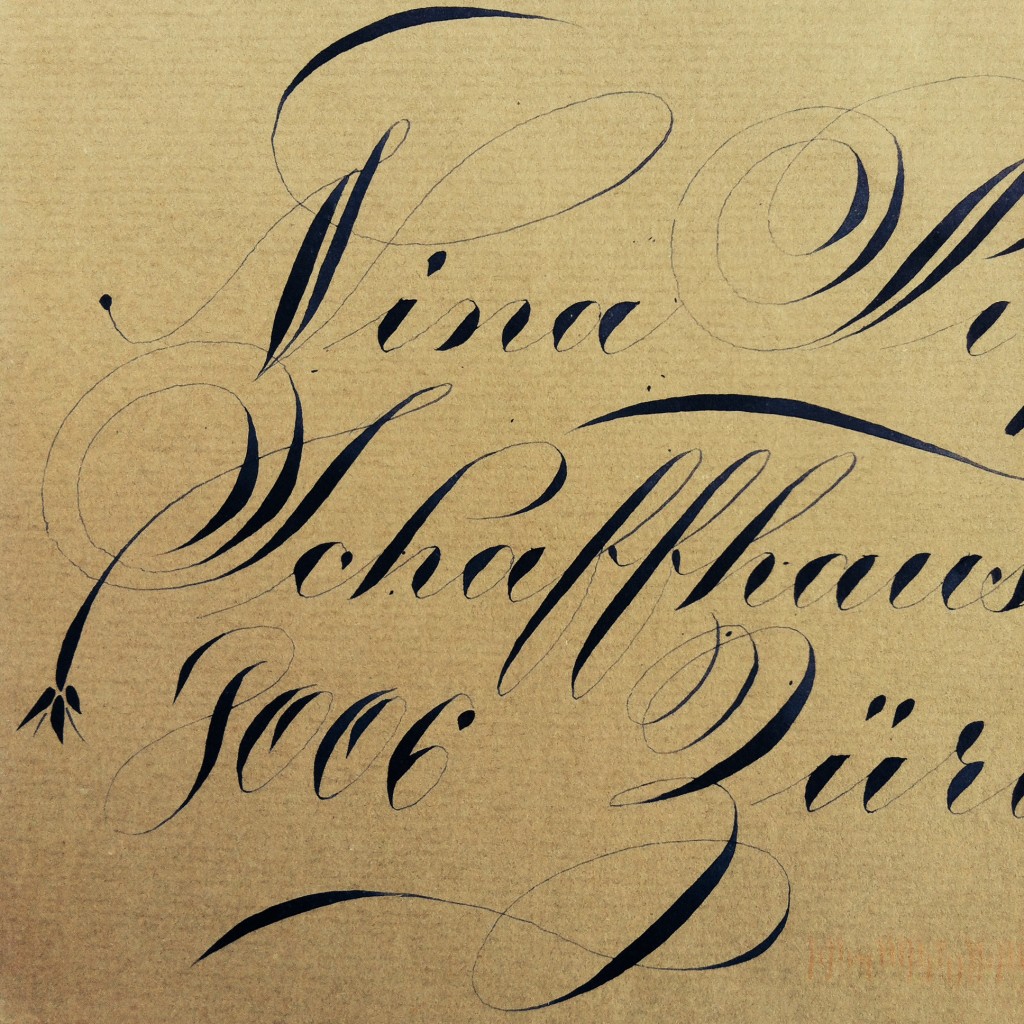 Nina
Schaffhaus
8006 Zür